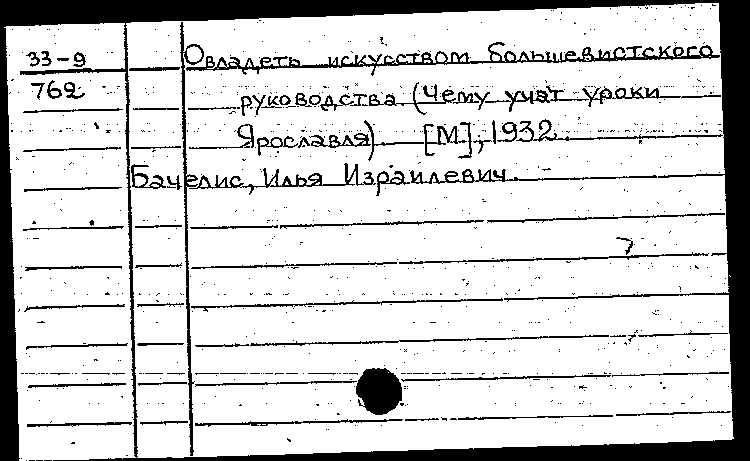 33-9 Овладеть искусством большевистского
762 руководства (Чему учат уроки
Ярославля). [М], 1932.
Бачелис, Илья Израилевич.